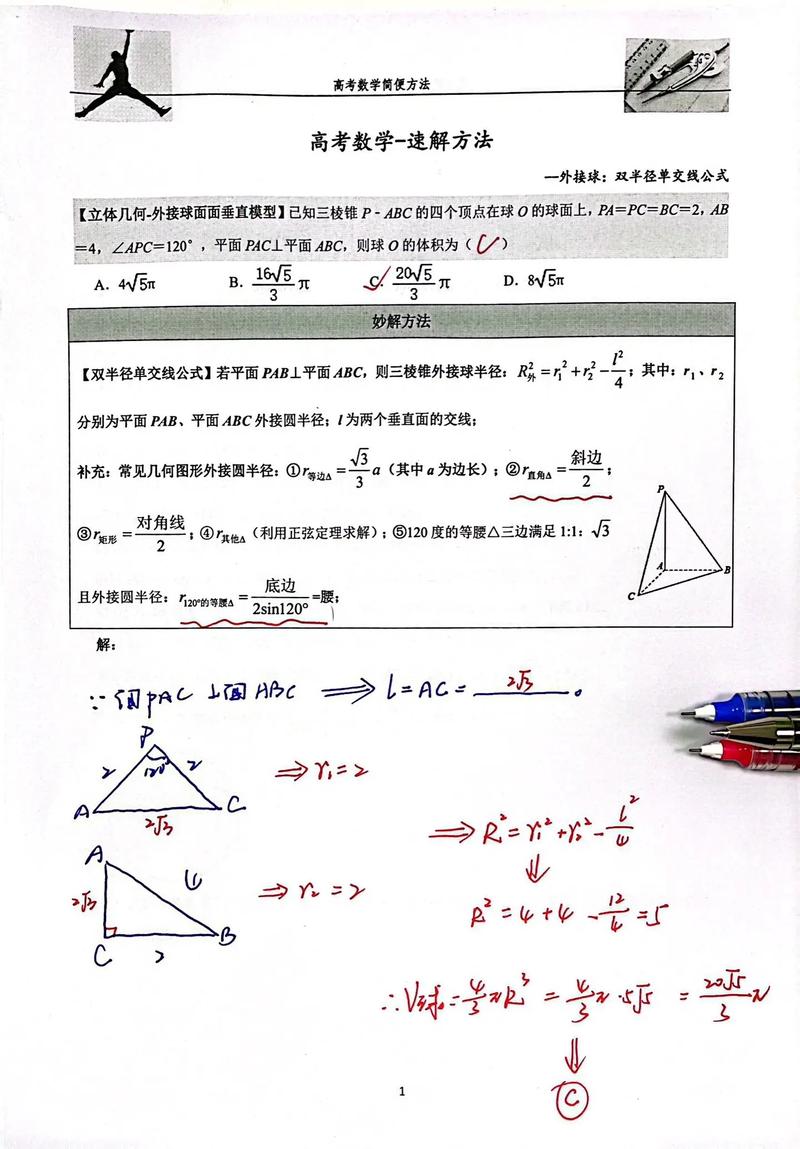 高考数学简便方法
高考数学-速解方法
—外接球：双半径单交线公式
【立体几何-外接球面面垂直模型】已知三棱锥 P - ABC 的四个顶点在球 O 的球面上，PA=PC=BC=2，AB
=4，∠APC=120°，平面 PAC⊥平面 ABC，则球 O 的体积为（ C ）
A. 4√5π B. 16√5/3 π C. 20√5/3 π D. 8√5π
妙解方法
【双半径单交线公式】若平面 PAB⊥平面 ABC，则三棱锥外接球半径：R外² = r₁² + r₂² - l²/4；其中：r₁、r₂
分别为平面 PAB、平面 ABC 外接圆半径；l 为两个垂直面的交线；
补充：常见几何图形外接圆半径：①r等边Δ = √3/3 a（其中 a 为边长）；②r直角Δ = 斜边/2；
③r矩形 = 对角线/2；④r其他Δ（利用正弦定理求解）；⑤120 度的等腰△三边满足 1:1：√3
且外接圆半径：r120°的等腰Δ = 底边/2sin120° =腰；
P
A
B
C
解：
∵面PAC⊥面ABC ⟹ l=AC= 2√3 。
P
2 120° 2
A C
2√3
⟹ r₁=2
A
2√3 4
C B
2
⟹ r₂=2
⟹ R²=r₁²+r₂²-l²/4
⇓
R²=4+4-12/4=5
∴V球=4/3πR³ = 4/3π·5√5 = 20√5/3 π
⇓
C
1